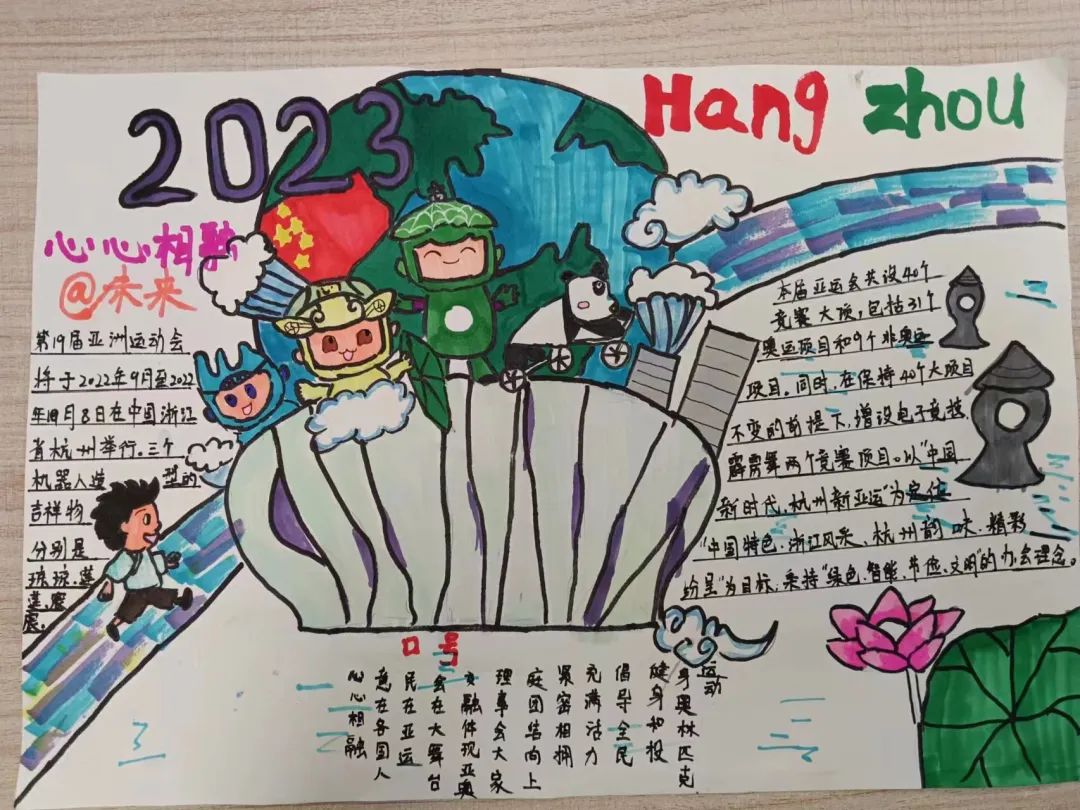 2023
Hang zhou
心心相融
@未来
第19届亚洲运动会
将于2022年9月至2022
年10月8日在中国浙江
省杭州举行。三个
机器人造型的
吉祥物
分别是
琮琮,莲
莲,宸
宸。
本届亚运会共设40个
竞赛大项,包括31个
奥运项目和9个非奥运
项目。同时,在保持40个大项目
不变的前提下,增设电子竞技
霹雳舞两个竞赛项目。以"中国
新时代,杭州新亚运"为定位
"中国特色·浙江风采、杭州韵味、精彩
纷呈"为目标,秉持"绿色、智能、节俭、文明"的办会理念。
口号
心心相融
意在各国人
民在亚运
会在大舞台
交融体现亚奥
理事会大家
庭团结向上
紧密相拥
充满活力
倡导全民
健身和投
身奥林匹克
运动